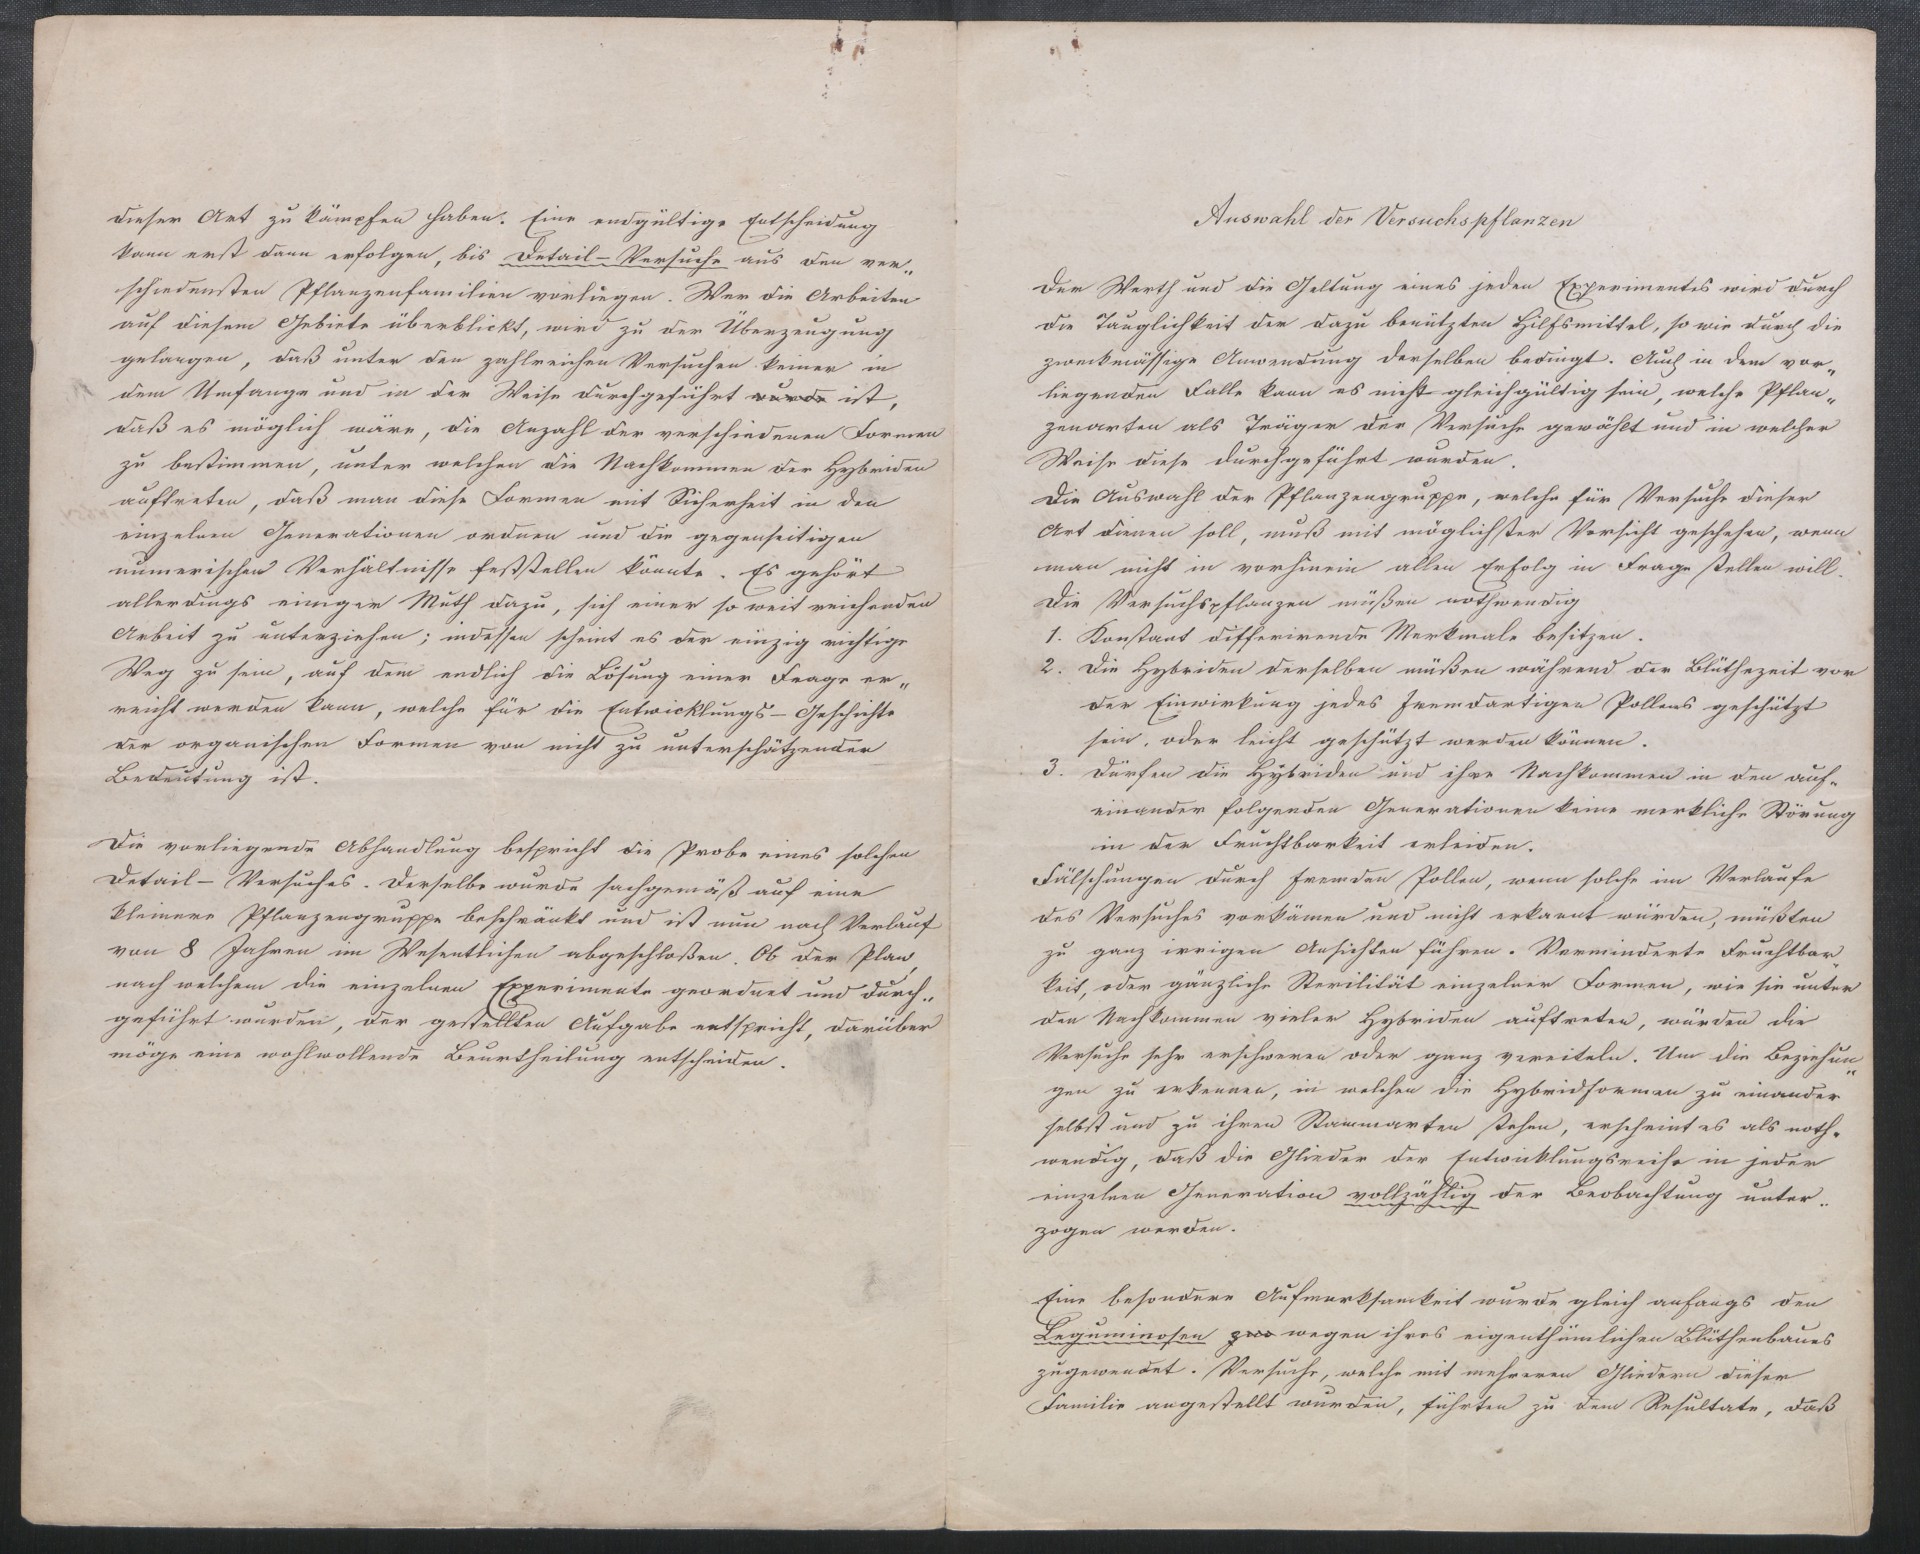 dieser Art zu kämpfen haben. Eine endgültige Entscheidung
kann erst dann erfolgen, bis Detail-Versuche aus den ver„
schiedensten Pflanzenfamilien vorliegen. Wer die Arbeiten
auf diesem Gebiete überblickt, wird zu der Überzeugung
gelangen, daß unter den zahlreichen Versuchen keiner in
dem Umfange und in der Weise durchgeführt wurde ist,
daß es möglich wäre, die Anzahl der verschiedenen Formen
zu bestimmen, unter welchen die Nachkommen der Hybriden
auftreten, daß man diese Formen mit Sicherheit in den
einzelnen Generationen ordnen und die gegenseitigen
numerischen Verhältnisse feststellen könnte. Es gehört
allerdings einiger Muth dazu, sich einer so weit reichenden
Arbeit zu unterziehen; indessen scheint es der einzig richtige
Weg zu sein, auf dem endlich die Lösung einer Frage er„
reicht werden kann, welche für die Entwicklungs-Geschichte
der organischen Formen von nicht zu unterschätzender
Bedeutung ist.
Die vorliegende Abhandlung bespricht die Probe eines solchen
Detail-Versuches. Derselbe wurde sachgemäß auf eine
kleinere Pflanzengruppe beschränkt und ist nun nach Verlauf
von 8 Jahren im Wesentlichen abgeschloßen. Ob der Plan,
nach welchem die einzelnen Experimente geordnet und durch„
geführt wurden, der gestellten Aufgabe entspricht, darüber
möge eine wohlwollende Beurtheilung entscheiden.
Auswahl der Versuchspflanzen
Der Werth und die Geltung eines jeden Experimentes wird durch
die Tauglichkeit der dazu benützten Hilfsmittel, so wie durch die
zweckmässige Anwendung derselben bedingt. Auch in dem vor„
liegenden Falle kann es nicht gleichgültig sein, welche Pflan„
zenarten als Träger der Versuche gewählt und in welcher
Weise diese durchgeführt wurden.
Die Auswahl der Pflanzengruppe, welche für Versuche dieser
Art dienen soll, muß mit möglichster Vorsicht geschehen, wenn
man nicht im vorhinein allen Erfolg in Frage stellen will.
Die Versuchspflanzen müßen nothwendig
1. Konstant differirende Merkmale besitzen.
2. Die Hybriden derselben müßen während der Blüthezeit vor
der Einwirkung jedes fremdartigen Pollens geschützt
sein, oder leicht geschützt werden können.
3. Dürfen die Hybriden und ihre Nachkommen in den auf„
einander folgenden Generationen keine merkliche Störung
in der Fruchtbarkeit erleiden.
Fälschungen durch fremden Pollen, wenn solche im Verlaufe
des Versuches vorkämen und nicht erkannt würden, müßten
zu ganz irrigen Ansichten führen. Verminderte Fruchtbar„
keit, oder gänzliche Sterilität einzelner Formen, wie sie unter
den Nachkommen vieler Hybriden auftreten, würden die
Versuche sehr erschweren oder ganz vereiteln. Um die Beziehun„
gen zu erkennen, in welchen die Hybridformen zu einander
selbst und zu ihren Stammarten stehen, erscheint es als noth„
wendig, daß die Glieder der Entwicklungsreihe in jeder
einzelnen Generation vollzählig der Beobachtung unter„
zogen werden.
Eine besondere Aufmerksamkeit wurde gleich anfangs den
Leguminosen wegen ihres eigenthümlichen Blüthenbaues
zugewendet. Versuche, welche mit mehreren Gliedern dieser
Familie angestellt wurden, führten zu dem Resultate, daß